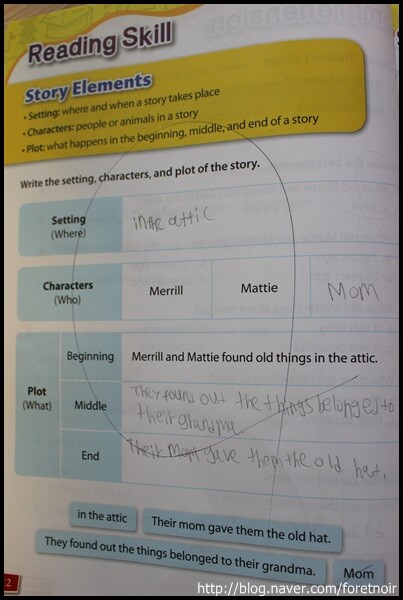 Reading Skill
Story Elements
• Setting: where and when a story takes place
• Characters: people or animals in a story
• Plot: what happens in the beginning, middle, and end of a story
Write the setting, characters, and plot of the story.
Setting
(Where)
in the attic
Characters
(Who)
Merrill
Mattie
Mom
Plot
(What)
Beginning
Merrill and Mattie found old things in the attic.
Middle
They found out the things belonged to
their grandma.
End
Their mom gave them the old hat.
in the attic
Their mom gave them the old hat.
They found out the things belonged to their grandma.
Mom
2
http://blog.naver.com/foretnoir